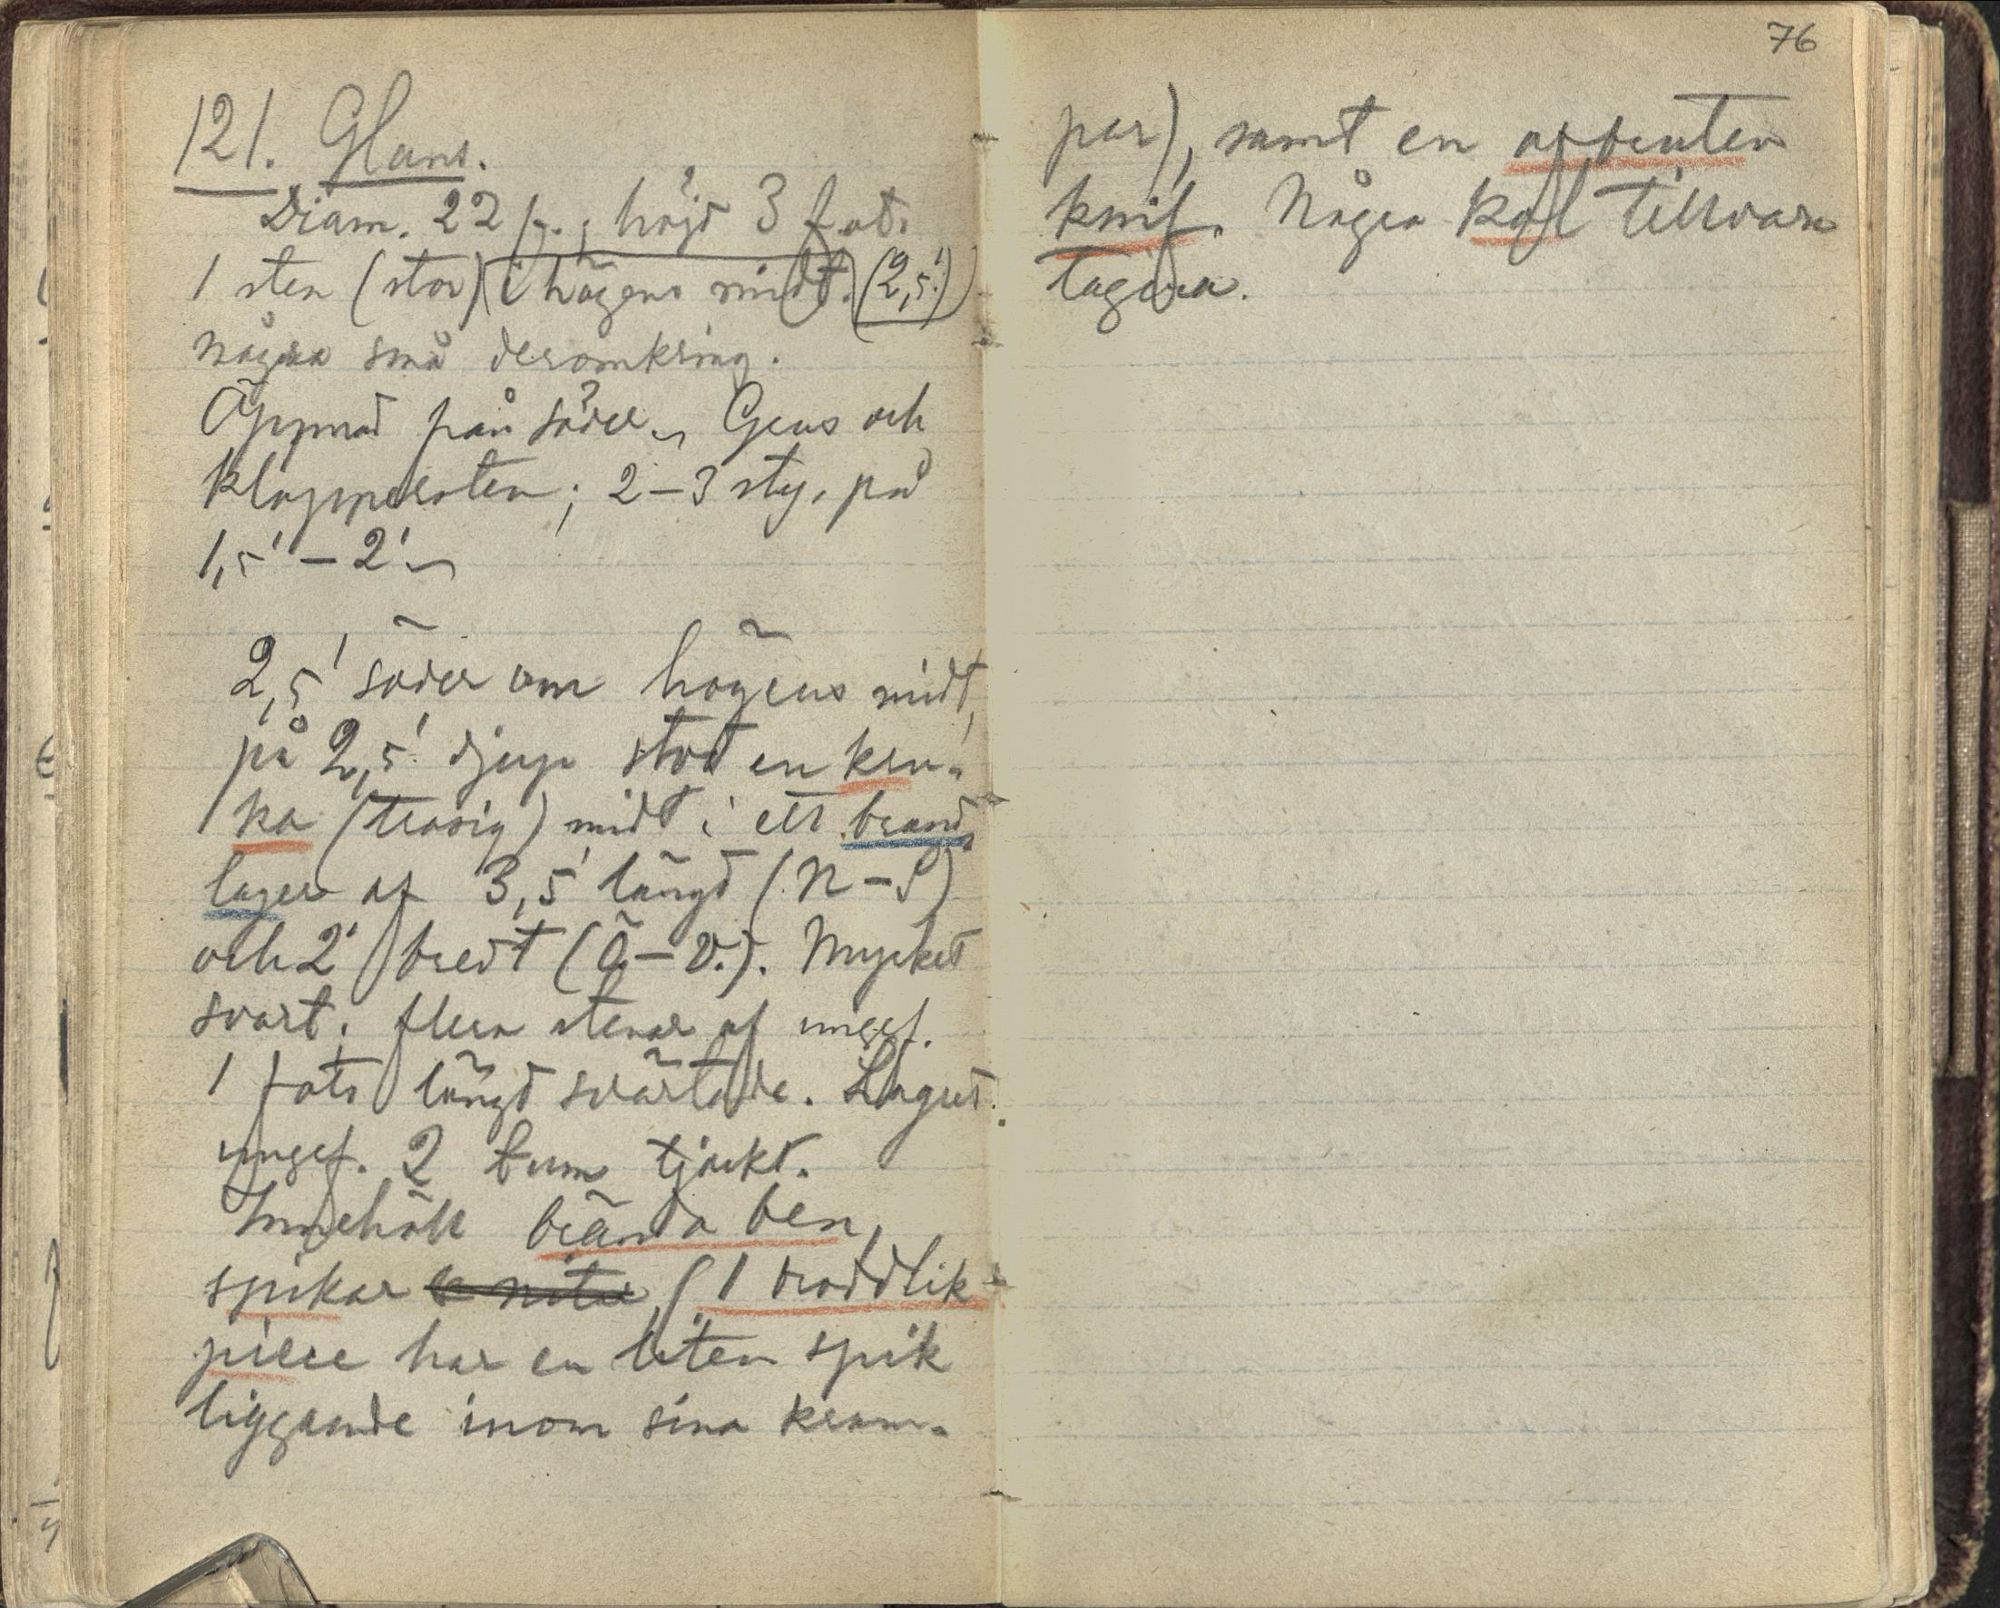 121. Hans.
Diam. 22 f.; höjd 3 fot.
1 sten (stor) i högens midt. (2,5')
några små deromkring.
Öppnad från söder. Grus och
klappersten; 2–3 sty. på
1,5' – 2'
2,5' söder om högens midt,
på 2,5' djup stod en kru-
ka (trasig) midt i ett brand-
lager af 3,5' längd (N–S)
och 2' bredt (Ö–V.). Mycket
svart; flera stenar af ungef.
1 fots längd svärtade. Lagret
ungef. 2 tum tjockt.
Innehöll brända ben,
spikar (1 broddlik
pièce har en liten spik
liggande inom sina kram-
76
par), samt en afbruten
knif. Några kol tillvara
tagna.